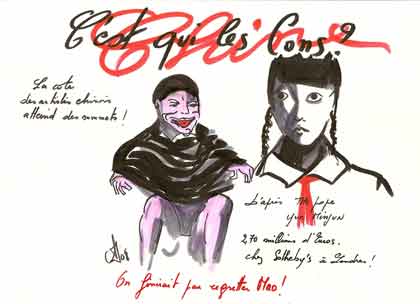 C'est qui les Cons ?
Chine
La cote
des artistes chinois
atteind des sommets !
D'après The pope
Yue Minjun
270 millions d'Euros.
chez Sotheby's à Londres !
On finirait par regretter Mao !